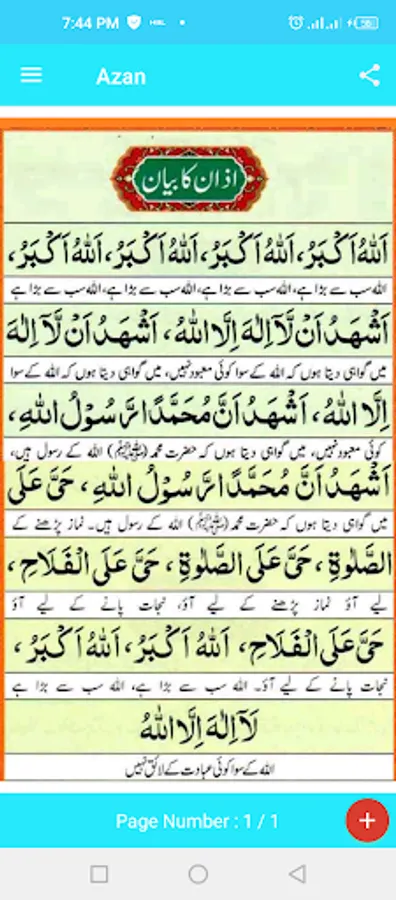 7:44 PM HBL
Azan
اذان کا بیان
اَللّٰهُ اَكْبَرُ، اَللّٰهُ اَكْبَرُ، اَللّٰهُ اَكْبَرُ، اَللّٰهُ اَكْبَرُ،
اللہ سب سے بڑا ہے، اللہ سب سے بڑا ہے، اللہ سب سے بڑا ہے، اللہ سب سے بڑا ہے
اَشْهَدُ اَنْ لَّآ اِلٰهَ اِلَّا اللّٰهُ، اَشْهَدُ اَنْ لَّآ اِلٰهَ
میں گواہی دیتا ہوں کہ اللہ کے سوا کوئی معبود نہیں، میں گواہی دیتا ہوں کہ اللہ کے سوا
اِلَّا اللّٰهُ، اَشْهَدُ اَنَّ مُحَمَّدًا رَّسُوْلُ اللّٰهِ،
کوئی معبود نہیں، میں گواہی دیتا ہوں کہ حضرت محمد (ﷺ) اللہ کے رسول ہیں،
اَشْهَدُ اَنَّ مُحَمَّدًا رَّسُوْلُ اللّٰهِ، حَیَّ عَلَی
میں گواہی دیتا ہوں کہ حضرت محمد (ﷺ) اللہ کے رسول ہیں۔ نماز پڑھنے کے
الصَّلٰوةِ، حَیَّ عَلَی الصَّلٰوةِ، حَیَّ عَلَی الْفَلَاحِ،
لیے آؤ نماز پڑھنے کے لیے آؤ، نجات پانے کے لیے آؤ
حَیَّ عَلَی الْفَلَاحِ، اَللّٰهُ اَكْبَرُ، اَللّٰهُ اَكْبَرُ،
نجات پانے کے لیے آؤ۔ اللہ سب سے بڑا ہے، اللہ سب سے بڑا ہے
لَآ اِلٰهَ اِلَّا اللّٰهُ
اللہ کے سوا کوئی عبادت کے لائق نہیں
Page Number : 1 / 1